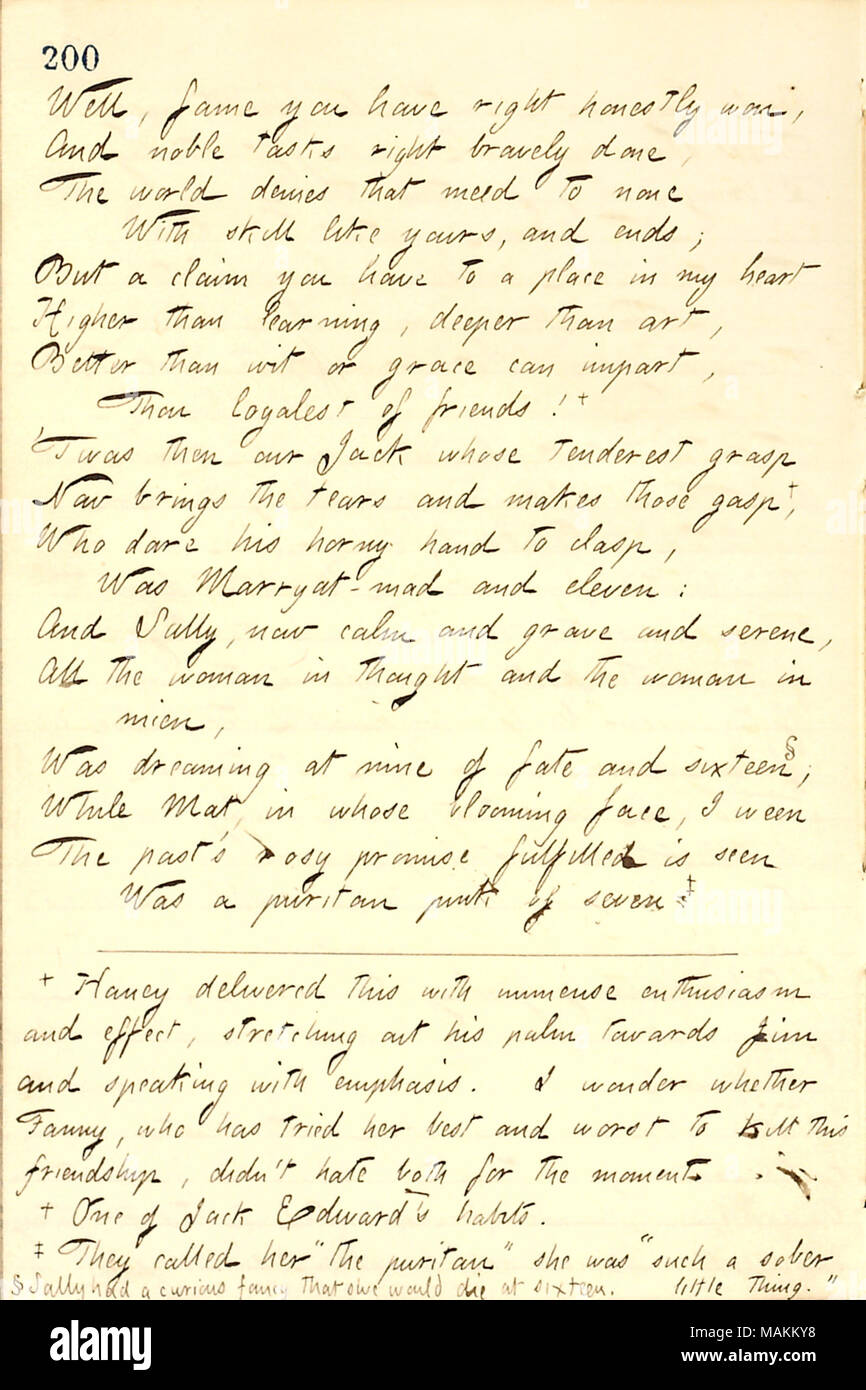 200
Well, fame you have right honestly won,
And noble tasks right bravely done,
The world denies that meed to none
With skill like yours, and ends;
But a claim you have to a place in my heart
Higher than learning, deeper than art,
Better than wit or grace can impart,
Thou loyalest of friends! †
'Twas then our Jack whose tenderest grasp
Now brings the tears and makes those gasp†,
Who dare his horny hand to clasp,
Was Marryat-mad and eleven:
And Sally, now calm and grave and serene,
All the woman in thought and the woman in
mien,
Was dreaming at nine of fate and sixteen§;
While Mat, in whose blooming face, I ween
The past's rosy promise fulfilled is seen
Was a puritan pink of seven ‡
† Haney delivered this with immense enthusiasm
and effect, stretching out his palm towards Jim
and speaking with emphasis. I wonder whether
Fanny, who has tried her best and worst to kill this
friendship, didn't hate both for the moment.
† One of Jack Edward's habits.
‡ They called her "the puritan" she was "such a sober
little thing."
§ Sally had a curious fancy that she would die at sixteen.
alamy
Image ID: MAKKY8
www.alamy.com